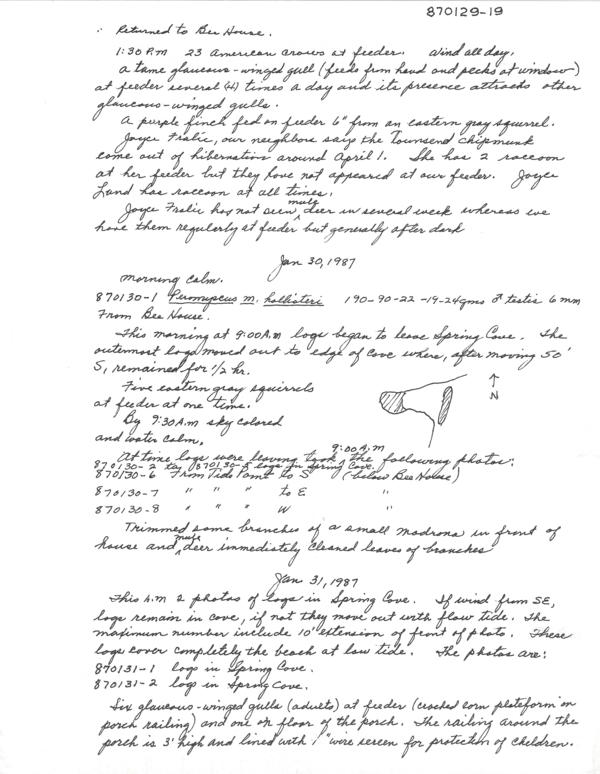 870129-19
Returned to Bee House.
1:30 P.M 23 American crows at feeder. Wind all day.
A tame glaucous-winged gull (feeds from hand and pecks at window)
at feeder several (4) times a day and its presence attracts other
glaucous-winged gulls.
A purple finch fed on feeder 6" from an eastern gray squirrel.
Joyce Fralic, our neighbors says the Townsend chipmunk
come out of hibernation around April 1. She has 2 raccoon
at her feeder but they have not appeared at our feeder. Joyce
Lund has raccoon at all times.
Joyce Fralic has not seen mule deer in several week whereas we
have them regularly at feeder but generally after dark
Jan 30, 1987
Morning calm.
870130-1 Peromyscus m. hollisteri 190-90-22-19-24gms ♂ testis 6 mm
From Bee House.
This morning at 9:00 A.M logs began to leave Spring Cove. The
outermost logs moved out to edge of cove where, after moving 50'
S, remained for 1/2 hr.
Five eastern gray squirrels
at feeder at one time.
By 9:30 A.M sky colored
and water calm.
N
At time logs were leaving took 9:00 A.M the following photos:
870130-2 to 870130-5 logs in Spring Cove.
870130-6 From Tide Point to S (below Bee House)
870130-7 " " " to E "
870130-8 " " " W "
Trimmed some branches of a small madrona in front of
house and mule deer immediately cleaned leaves of branches
Jan 31, 1987
This A.M 2 photos of logs in Spring Cove. If wind from SE,
logs remain in cove, if not they move out with flow tide. The
maximum number include 10' extension of front of photo. These
logs cover completely the beach at low tide. The photos are:
870131-1 logs in Spring Cove.
870131-2 logs in Spring Cove.
Six glaucous-winged gulls (adults) at feeder (cracked corn plateform on
porch railing) and one on floor of the porch. The railing around the
porch is 3' high and lined with 1" wire screen for protection of children.